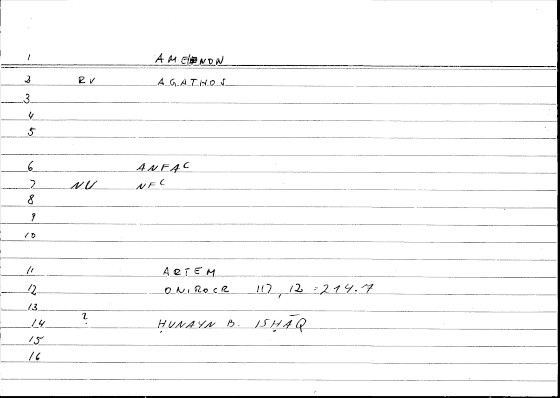 1 AMEINON
2 RV AGATHOS
3
4
5
6 ANFAʿ
7 NV NFʿ
8
9
10
11 ARTEM
12 ONIROCR 117, 12 = 214.7
13
14 ? ḤUNAYN B. ISḤĀQ
15
16